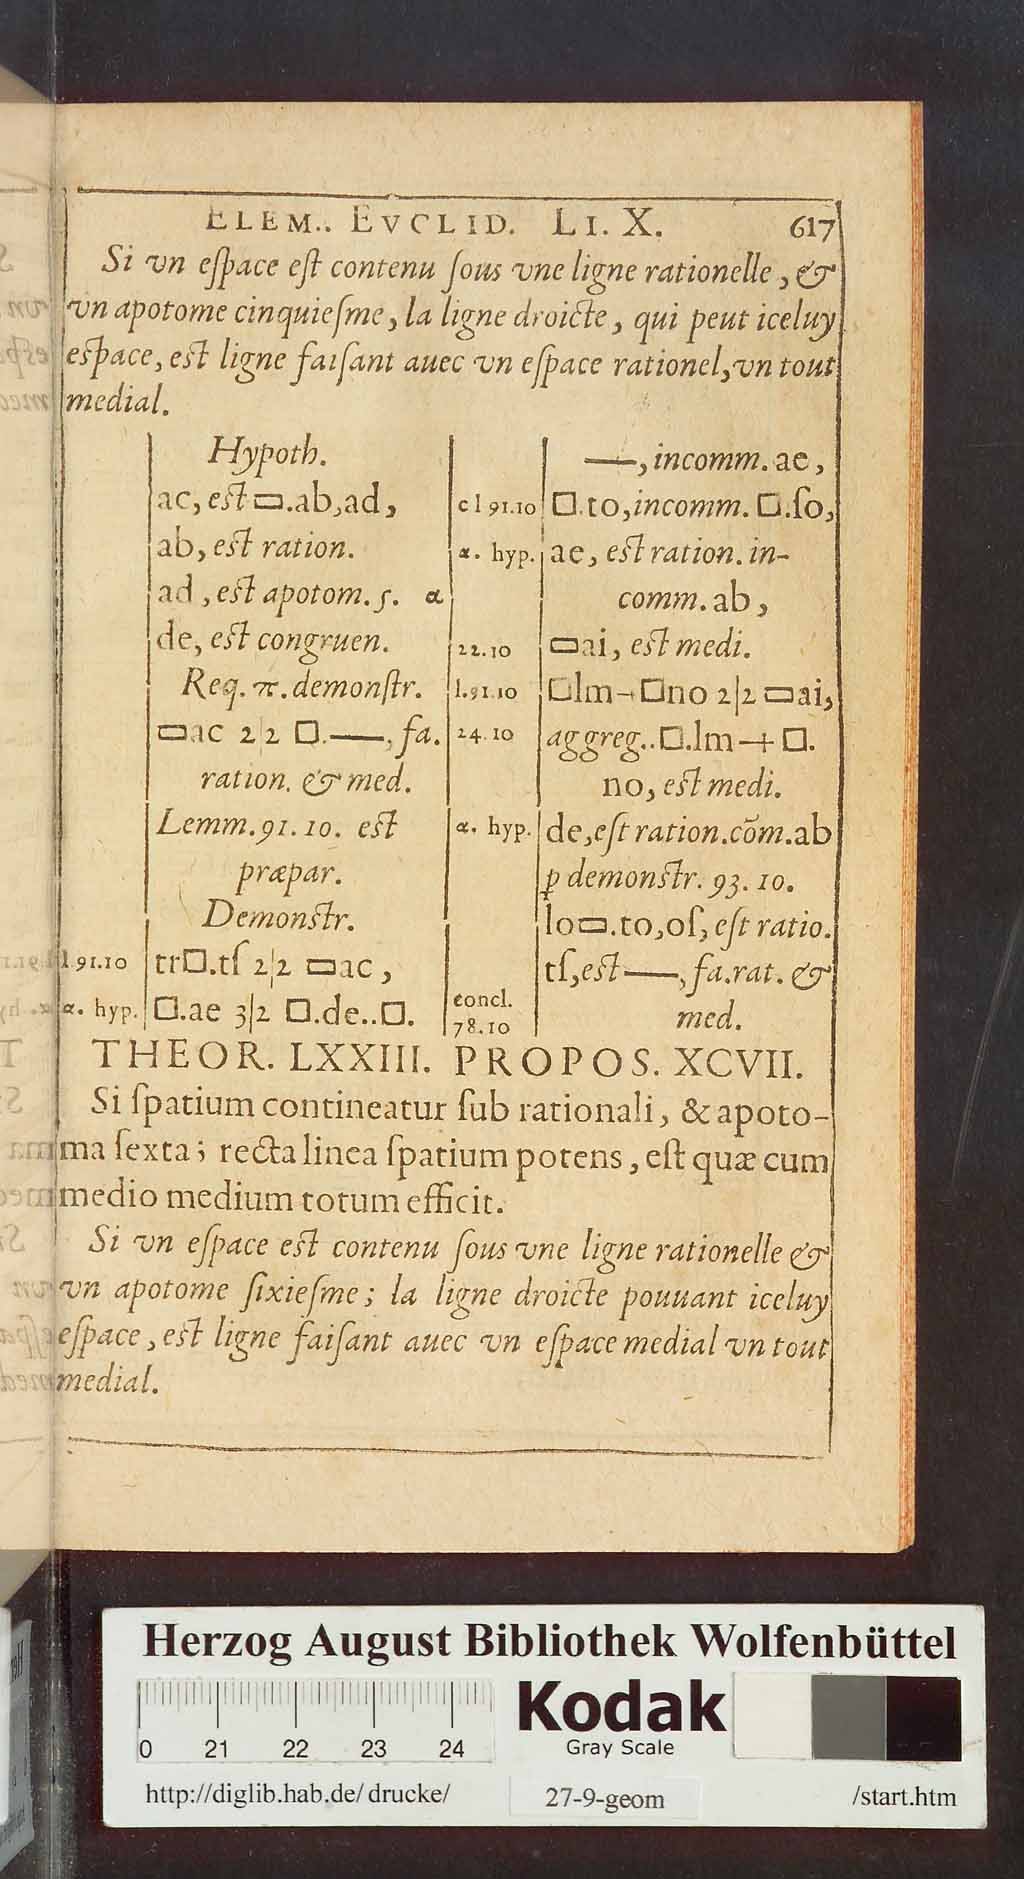 ELEM.. EVCLID. LI. X. 617
Si vn eſpace eſt contenu ſous vne ligne rationelle, &
vn apotome cinquieſme, la ligne droicte, qui peut iceluy
eſpace, eſt ligne faiſant auec vn eſpace rationel, vn tout
medial.
Hypoth.
ac, eſt ▭.ab, ad,
ab, eſt ration.
ad, eſt apotom. 5. α
de, eſt congruen.
Req. π. demonſtr.
▭ac 2|2 □.—, fa.
ration. & med.
Lemm. 91. 10. eſt
præpar.
Demonſtr.
l.91.10 tr□.tſ 2|2 ▭ac,
α. hyp. □.ae 3|2 □.de..□.
—, incomm. ae,
c l 91.10 □.to, incomm. □.ſo,
α. hyp. ae, eſt ration. in-
comm. ab,
22.10 ▭ai, eſt medi.
l.91.10 □lm+□no 2|2 ▭ai,
24.10 aggreg..□.lm+□.
no, eſt medi.
α. hyp. de, eſt ration. cõm. ab
ꝑ demonſtr. 93. 10.
lo▭.to, oſ, eſt ratio.
tſ, eſt —, fa. rat. &
concl.
78.10 med.
THEOR. LXXIII. PROPOS. XCVII.
Si ſpatium contineatur ſub rationali, & apoto-
ma ſexta; recta linea ſpatium potens, eſt quæ cum
medio medium totum efficit.
Si vn eſpace eſt contenu ſous vne ligne rationelle &
vn apotome ſixieſme; la ligne droicte pouuant iceluy
eſpace, eſt ligne faiſant auec vn eſpace medial vn tout
medial.
Herzog August Bibliothek Wolfenbüttel
Kodak
Gray Scale
0 21 22 23 24
http://diglib.hab.de/drucke/ 27-9-geom /start.htm